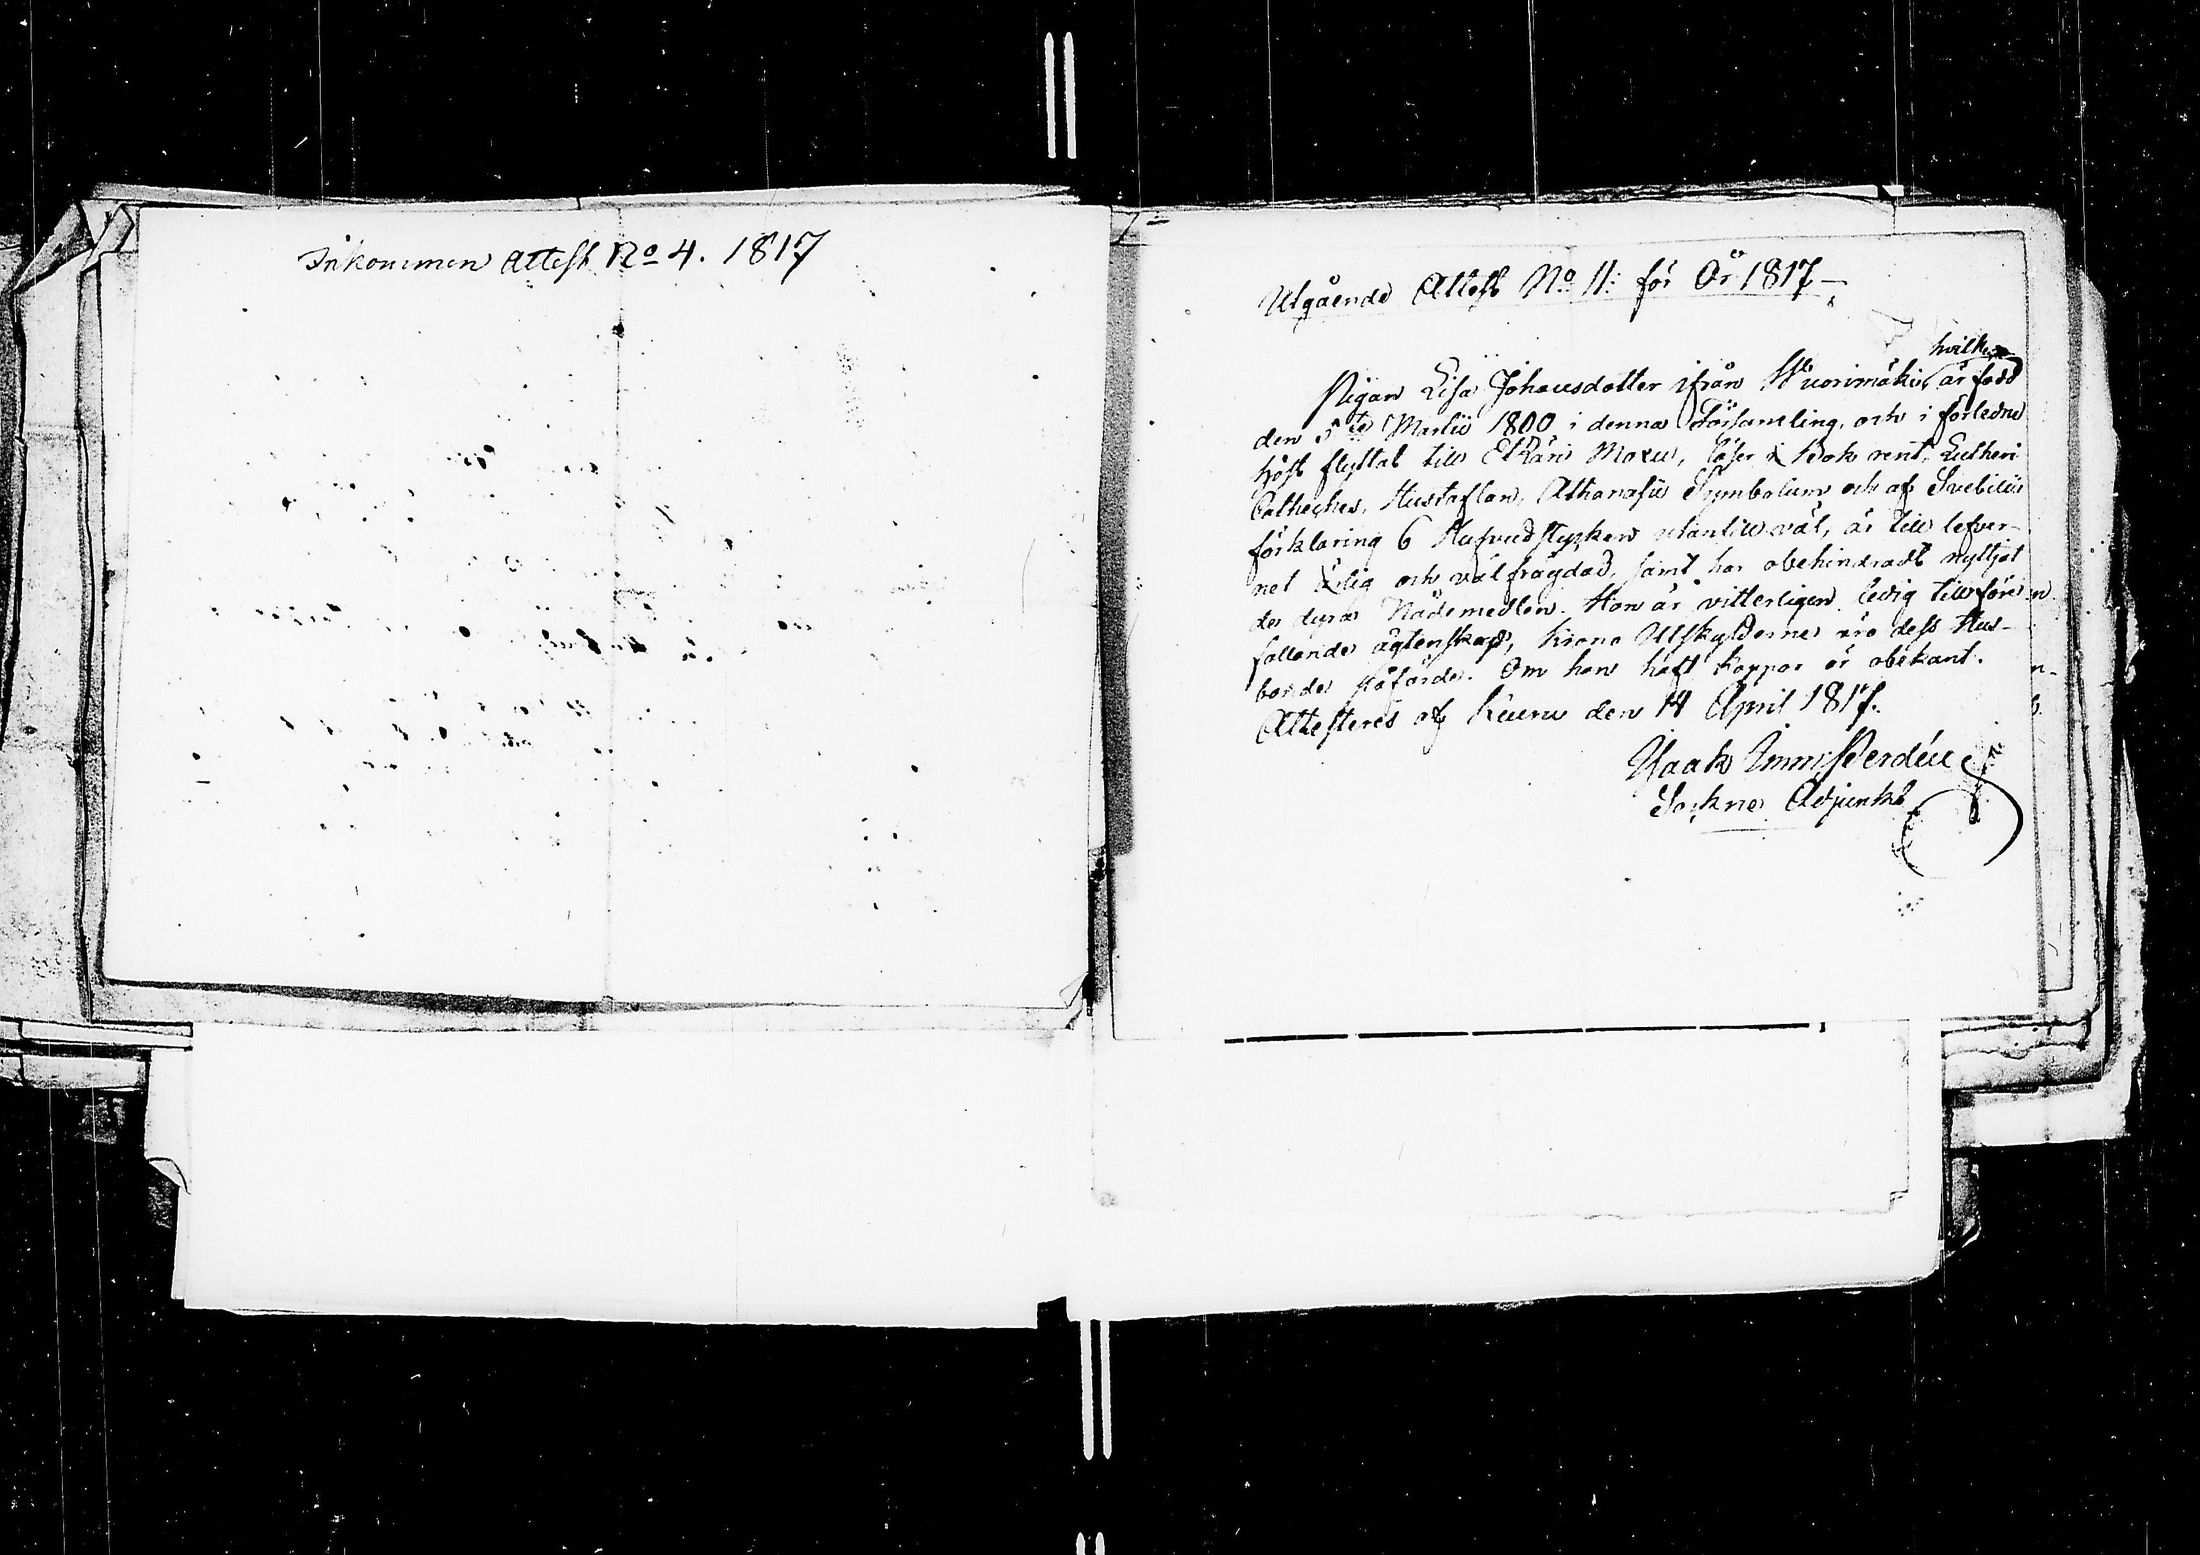 Inkommen Attest No 4. 1817
Utgående Attest No 11: för År 1817 —
hvilken
Pigan Lisa Johansdotter ifrån Wuorimäki, är född
den 5te Martii 1800 i denna Församling, och i förledne
höst flyttat till Etseri Moxu, läser i bok rent, Lutheri
Catheches, Hustaflan, Athanasii Symbolum och af Svebilii
förklaring 6 Hufvudstycken utantill väl, är till lefver-
net ärlig och välfrägdad, samt har obehindradt nyttjat
de dyra Nådemedlen. Hon är vitterligen ledig till före-
fallande ägtenskap, Krono Utskylderne äro dess Hus-
bonde påförde. Om hon haft koppor är obekant.
Attesteras af Keuru den 14 April 1817.
Isaak Imm: Perdén
Sockne Adjunkt